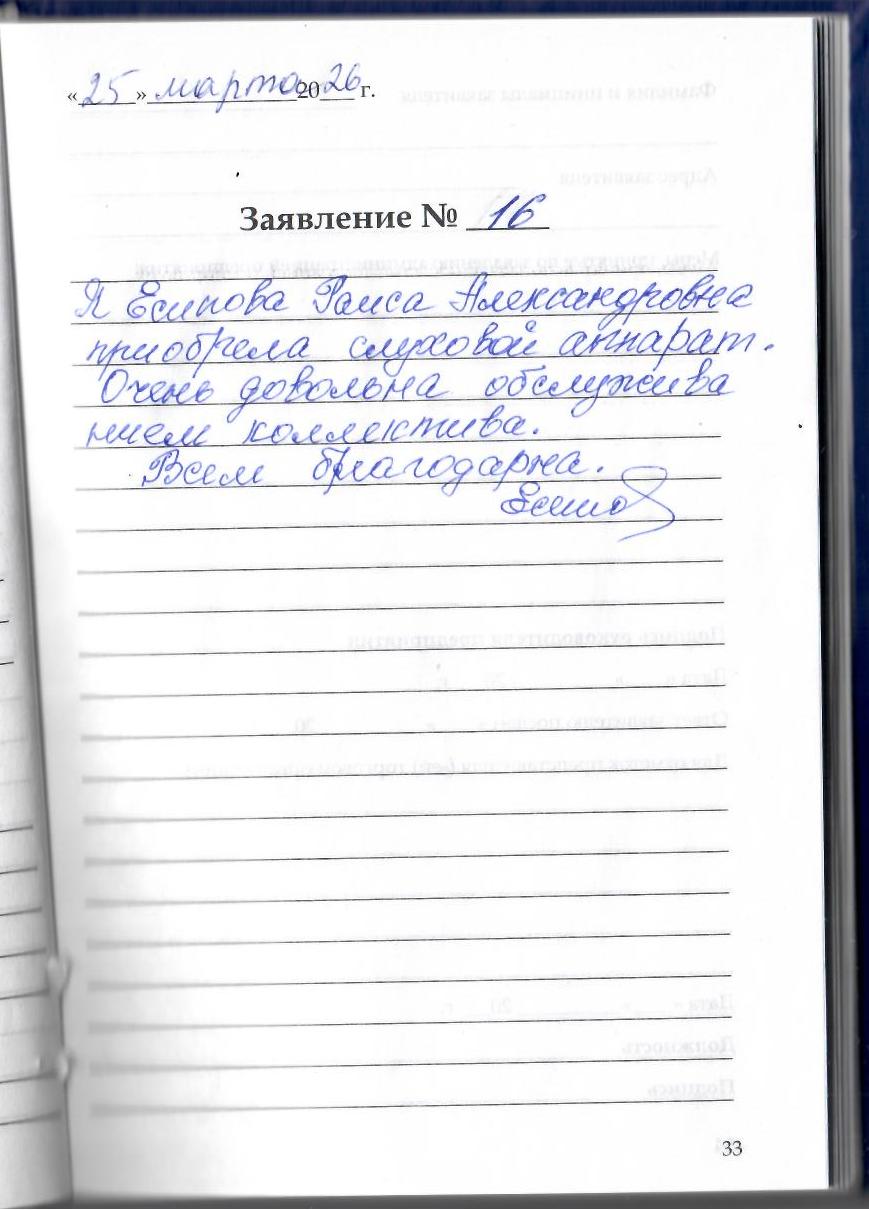 «25» марта 2026 г.
Заявление № 16
Я Есипова Раиса Александровна
приобрела слуховой аппарат.
Очень довольна обслужива
нием коллектива.
Всем благодарна.
33